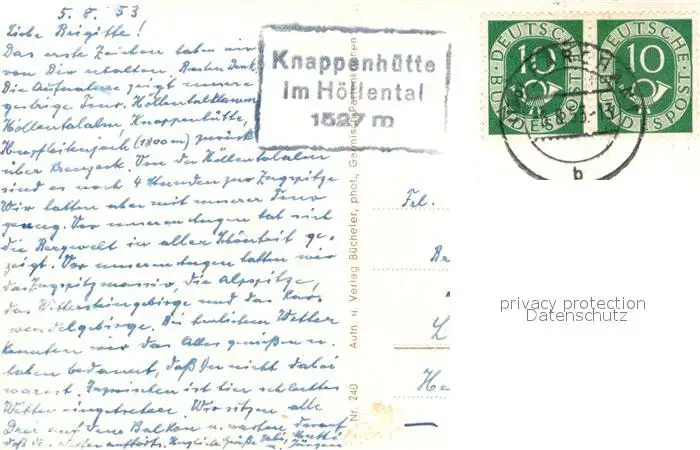 5. 8. 53
Liebe Birgitte!
Das erste Zeichen haben wir
von Dir erhalten. Besten Dank.
Die Aufnahme zeigt unsere
gestrige Tour. Höllentalklamm
Höllentalalm, Knappenhütte,
Hupfleitenjoch (1800 m) zurück
über Kreuzeck. Von der Höllentalalm
sind es noch 4 Stunden zur Zugspitze
Wir hatten aber mit unserer Tour
genug. Vor unseren Augen tat sich
die Bergwelt in aller Schönheit ge-
zeigt. Vor unseren Augen hatten wir
das Zugspitzmassiv, die Alpspitze,
das Wettersteingebirge und das Kar-
wendelgebirge. Bei herrlichem Wetter
konnten wir das Alles genießen u.
haben bedauert, daß Du nicht dabei
warest. Inzwischen ist hier schlechtes
Wetter eingetreten. Wir sitzen alle
Drei auf dem Balkon u. warten darauf
daß das Wetter aufhört. Herzliche Grüße Vati, Mutti
u. Jürgen
Knappenhütte
im Höllental
1527 m
Nr. 240 Aufn. u. Verlag Bücheler, phot., Garmisch-Partenkirchen
DEUTSCHE BUNDESPOST 10
DEUTSCHE BUNDESPOST 10
b
Frl.
L
He
privacy protection
Datenschutz